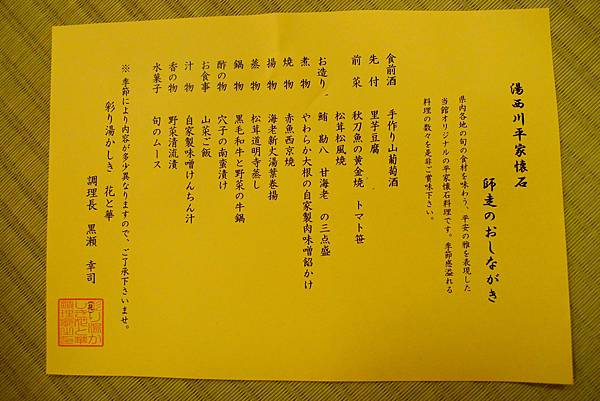 湯西川平家懐石
師走のおしながき
県内各地の旬の食材を味わう、平安の雅を表現した
当館オリジナルの平家懐石料理です。季節感溢れる
料理の数々を是非ご賞味下さい。
食前酒 手作り山葡萄酒
先付 里芋豆腐
前菜 秋刀魚の黄金焼 トマト笹
松茸松風焼
お造り 鮪 勘八 甘海老 の三点盛
煮物 やわらか大根の自家製肉味噌餡かけ
焼物 赤魚西京焼
揚物 海老新丈湯葉巻揚
蒸物 松茸道明寺蒸し
鍋物 黒毛和牛と野菜の牛鍋
酢の物 穴子の南蛮漬け
お食事 山菜ご飯
汁物 自家製味噌けんちん汁
香の物 野菜清流漬
水菓子 旬のムース
※ 季節により内容が多少異なりますので、ご了承下さいませ。
彩り湯かしき 花と華
調理長 黒瀬 幸司